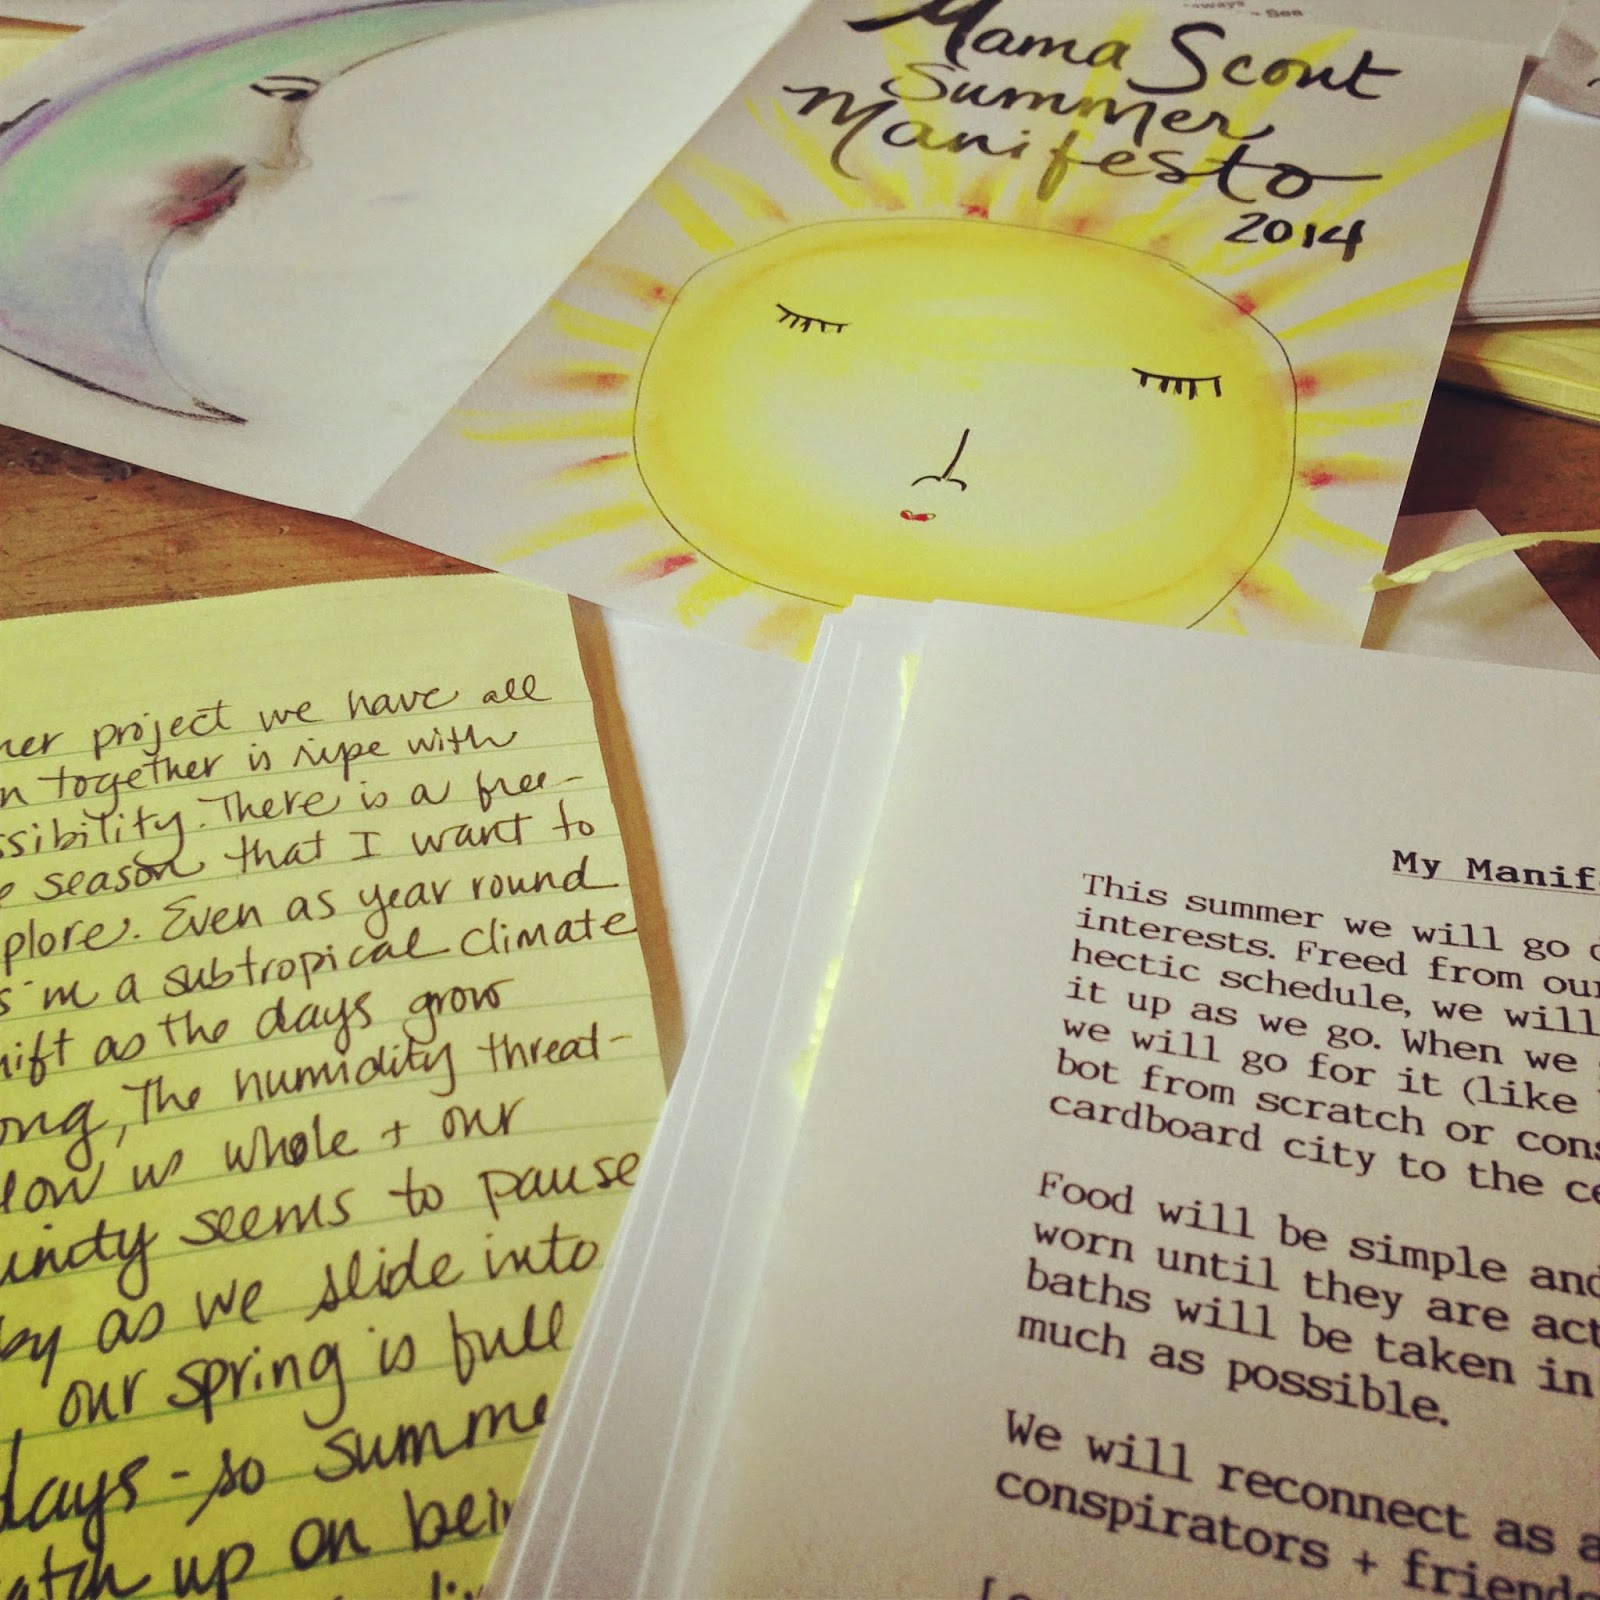 Mama Scout
Summer
Manifesto
2014
project we have all
together is ripe with
There is a free-
season that I want to
Even as year round
in a subtropical climate
as the days grow
The humidity threat-
us whole + our
seems to pause
as we slide into
our spring is full
days - so summe
up on bei
My Manif
This summer we will go
interests. Freed from our
hectic schedule, we will
it up as we go. When we
we will go for it (like
bot from scratch or cons
cardboard city to the ce
Food will be simple and
worn until they are act
baths will be taken in
much as possible.
We will reconnect as a
conspirators + friends